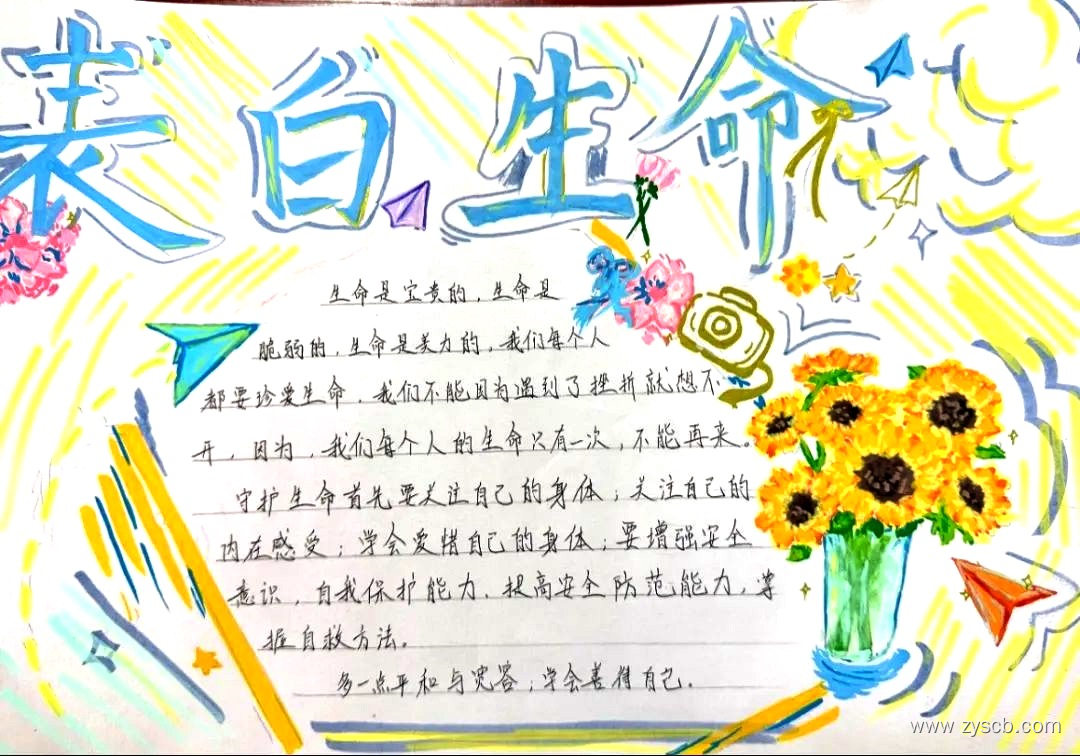 表白生命
生命是宝贵的，生命是
脆弱的，生命是美力的，我们每个人
都要珍爱生命，我们不能因为遇到了挫折就想不
开，因为，我们每个人的生命只有一次，不能再来。
守护生命首先要关注自己的身体；关注自己的
内在感受；学会爱惜自己的身体；要增强安全
意识，自我保护能力，提高安全防范能力，掌
握自救方法。
多一点平和与宽容；学会善待自己．
www.zyscb.com